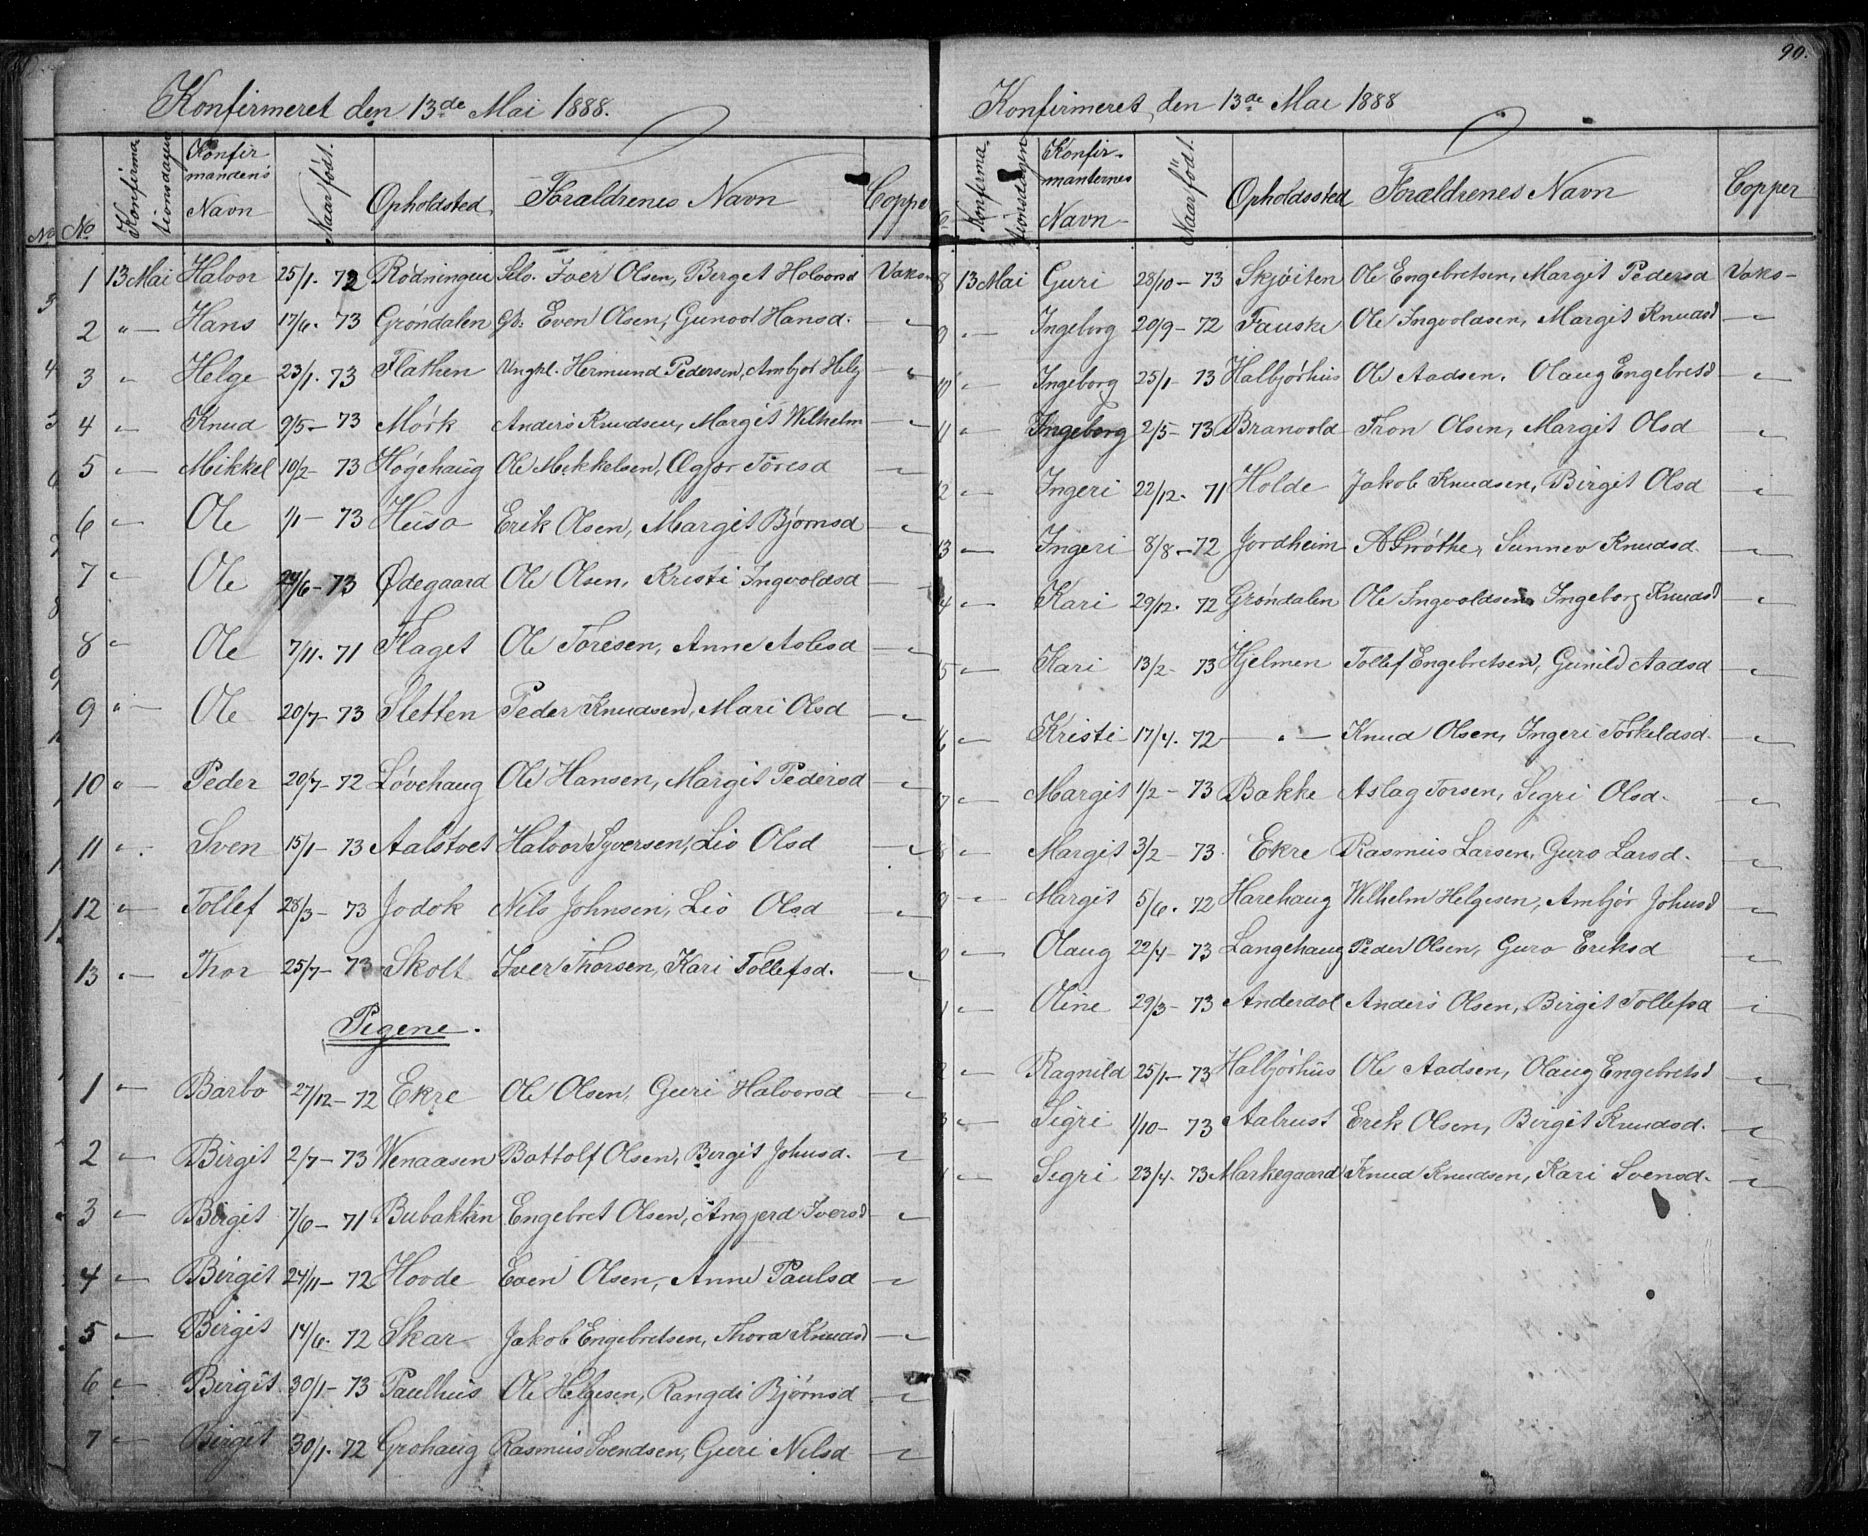 Konfirmeret den 13de Mai 1888.
No Konfirmationsdagen Konfirmandens Navn Naar født. Opholdsted Forældrenes Navn Copper
1 13 Mai Halvor 25/1. 72 Rødningen Selv. Iver Olsen, Berget Halvorsd Vaks.
2 " — Hans 17/6. 73 Grøndalen Gb: Even Olsen, Gunvor Hansd. — "
3 " Helge 23/1. 73 Flathen Ungkl. Hermund Pedersen, Ambjør Helg — "
4 " Knud 9/5 — 73 Mørk Anders Knudsen, Margit Wilhelm — "
5 " — Mikkel 10/2 — 73 Høgehaug Ole Mekkelsen, Toresd — "
6 " Ole 1/1 — 73 Huso Erik Olsen, Margit Bjørnsd — "
7 " Ole 29/6 — 73 Ødegaard Ole Olsen, Kristi Ingvoldsd — "
8 " Ole 7/11. 71 Flaget Ole Toresen, Anne Aslesd — "
9 " — Ole 20/7 — 73 Sletten Peder Knudsen, Mari Olsd — "
10 " — Peder 20/7 — 72 Løvehaug Ole Hansen, Margit Pedersd — "
11 " Sven 15/1 — 73 Aalstveit Halvor Syversen, Liv Olsd — "
12 " Tollef 28/3 — 73 Jodok Nils Johnsen, Liv Olsd — "
13 " — Thor 25/7 — 73 Skolt Iver Thorsen, Kari Tollefsd. — "
Pigene.
1 " Barbo 27/12 — 72 Ekre Ole Olsen, Guri Halvorsd — "
2 " Birgit 2/7 — 73 Wenaasen Bottolf Olsen, Birgit Johnsd. — "
3 " Birgit 7/6 — 71 Bubakken Engebret Olsen, Angjerd Iversd — "
4 " Birgit 24/11 — 72 Hovde Even Olsen, Anne Paulsd — "
5 " Birgit 14/6. 72 Skar Jakob Engebretsen, Thora Knudsd — "
6 " Birgit 30/1 — 73 Paulhus Ole Helgesen, Rangdi Bjørnsd — "
7 " Birgit 30/1. 72 Grohaug Rasmus Svendsen, Guri Nilsd — "
90.
Konfirmeret den 13de Mai 1888
Konfirmationsdagen Konfirmanternes Navn Naar født. Opholdssted Forældrenes Navn Copper
8 13 Mai Guri 28/10 — 73 Skjøiten Ole Engebretsen, Margit Pedersd Vaks —
9 " Ingeborg 29/9 — 72 Fauske Ole Ingvoldsen, Margit Knudsd — "
10 " Ingeborg 25/1 — 73 Halbjørhus Ole Aadsen. Olaug Engebretsd — "
11 " Ingeborg 2/5 — 73 Branvold Tron Olsen, Margit Olsd "
12 " Ingeri 22/12. 71 Holde Jakob Knudsen, Birgit Olsd "
13 " — Ingeri 8/8 — 72 Jordheim A Grøthe, Sunnev Knudsd. — "
4 " Kari 29/12. 72 Grøndalen Ole Ingvoldsen, Ingeborg Knudsd — "
5 " Kari 13/2 — 73 Hjelmen Tollef Engebretsen, Gunild Aadsd — "
6 " Kristi 17/4. 72 — " — Knud Olsen, Ingeri Torkeldsd. — "
7 " Margit 1/2 — 73 Bakke Aslag Torsen, Sigri Olsd. — "
8 " Margit 3/2 — 73. Ekre Rasmus Larsen, Guro Larsd. — "
9 " Margit 5/6. 72 Harehaug Wilhelm Helgesen, Ambjør Johnsd — "
0 " Olaug 22/4 — 73 Langehaug Peder Olsen, Guro Eriksd "
1 " Oline 29/3 — 73 Anderdal Anders Olsen, Birgit Tollefsd — "
2 " Ragnild 25/1 — 73 Halbjørhus Ole Aadsen, Olaug Engebretsd — "
3 " Sigri 1/10 — 73 Aalrust Erik Olsen, Birgit Knudsd. — "
" — Sigri 23/4. 73 Markegaard Knud Knudsen, Kari Svensd. — "